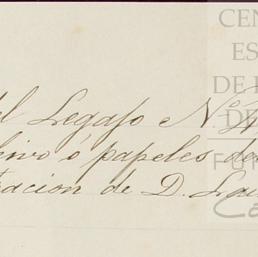 CEN
ES
DE
DE
el Legajo Nº
chivo ó papeles de
tracion de D.